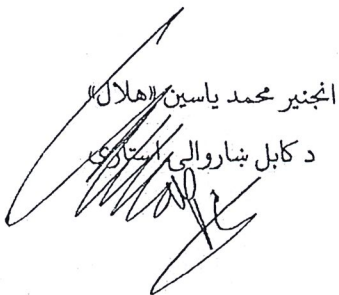 انجنیر محمد یاسین «هلال»
د کابل ښاروالی استازی